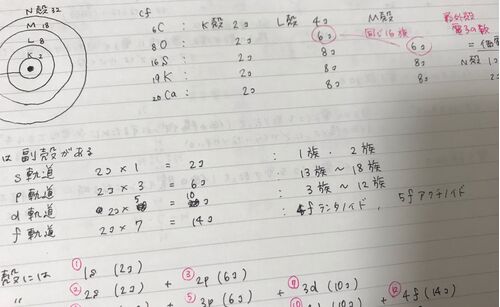 N殻 32
M 18
L 8
K 2
cf
K殻 L殻 M殻
最外殻
電子の数
₆C : 2コ 4コ
₈O : 2コ 6コ 同じ16族
₁₆S : 2コ 8コ 6コ
₁₉K : 2コ 8コ 8コ N殻 1コ
₂₀Ca : 2コ 8コ 8コ 2コ
は 副殻がある
s軌道 2コ × 1 = 2コ : 1族 . 2族
p軌道 2コ × 3 = 6コ : 13族 ~ 18族
d軌道 2コ × 5 = 10コ : 3族 ~ 12族
f軌道 2コ × 7 = 14コ : 4fランタノイド , 5fアクチノイド
殻には ① 1s (2コ)
〃 ② 2s (2コ) + ③ 2p (6コ)
3p (6コ) + 3d (10コ)
4f (14コ)